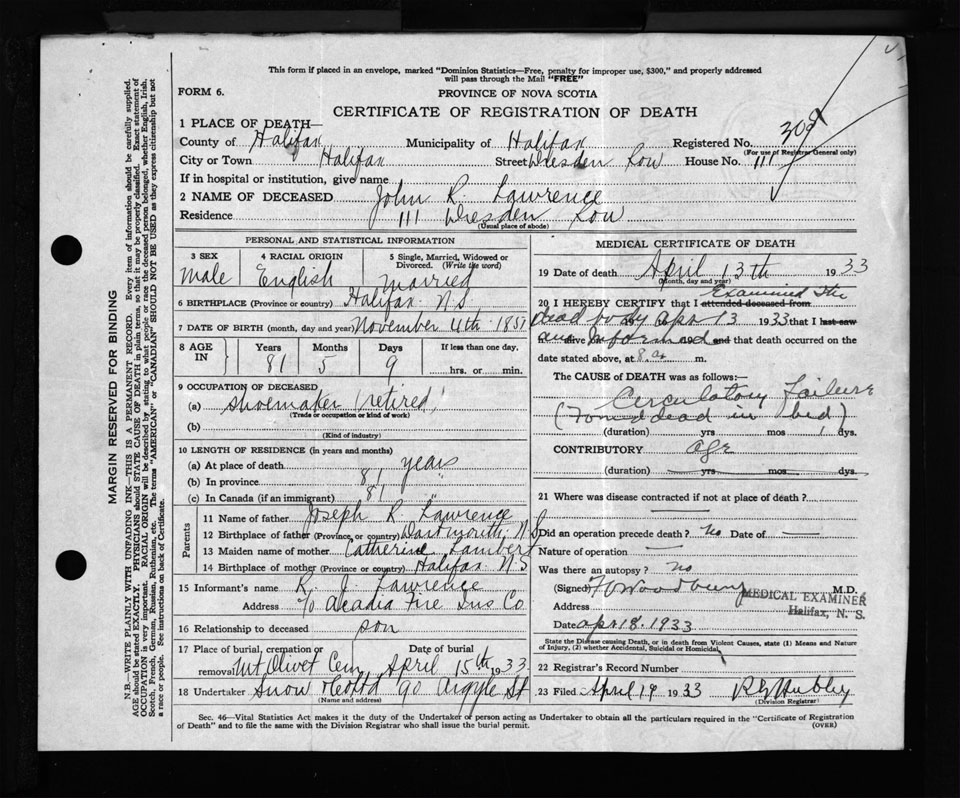 This form if placed in an envelope, marked "Dominion Statistics—Free, penalty for improper use, $300," and properly addressed
will pass through the Mail "FREE"
FORM 6.
PROVINCE OF NOVA SCOTIA
CERTIFICATE OF REGISTRATION OF DEATH
1 PLACE OF DEATH—
County of Halifax Municipality of Halifax Registered No. 308
(For use of Registrar General only)
City or Town Halifax Street Dresden Row House No. 111
If in hospital or institution, give name
2 NAME OF DECEASED John R. Lawrence
Residence 111 Dresden Row
(Usual place of abode)
PERSONAL AND STATISTICAL INFORMATION
3 SEX 4 RACIAL ORIGIN 5 Single, Married, Widowed or
Divorced. (Write the word)
Male English Married
6 BIRTHPLACE (Province or country) Halifax N.S.
7 DATE OF BIRTH (month, day and year) November 4th 1851
8 AGE IN Years Months Days If less than one day.
81 5 9 hrs. or min.
9 OCCUPATION OF DECEASED
(a) Shoemaker (retired)
(Trade or occupation or kind of work)
(b)
(Kind of industry)
10 LENGTH OF RESIDENCE (in years and months)
(a) At place of death years
(b) In province 81
(c) In Canada (if an immigrant) 81 "
Parents
11 Name of father Joseph R Lawrence
12 Birthplace of father (Province or country) Dartmouth, N.S.
13 Maiden name of mother Catherine Lambert
14 Birthplace of mother (Province or country) Halifax N.S
15 Informant's name R. J. Lawrence
Address c/o Acadia Fire Ins Co
16 Relationship to deceased son
17 Place of burial, cremation or removal Date of burial
Mt Olivet Cem April 15th 1933
18 Undertaker Snow & Co Ltd 90 Argyle St
(Name and address)
MEDICAL CERTIFICATE OF DEATH
19 Date of death April 13th 1933
(Month, day and year)
20 I HEREBY CERTIFY that I attended deceased from Examined the
dead body Apr 13 1933 that I last saw
informed and that death occurred on the
date stated above, at 8. a. m.
The CAUSE of DEATH was as follows:—
Circulatory Failure
(Found dead in bed)
(duration) yrs mos 1 dys.
CONTRIBUTORY age
(duration) yrs mos dys.
21 Where was disease contracted if not at place of death?
Did an operation precede death? No Date of —
Nature of operation —
Was there an autopsy? no
(Signed) Woodbury M.D.
MEDICAL EXAMINER
Address Halifax, N. S.
Date Apr 18. 1933
State the Disease causing Death, or in death from Violent Causes, state (1) Means and Nature
of Injury, (2) whether Accidental, Suicidal or Homicidal.
22 Registrar's Record Number
23 Filed April 19 1933
(Division Registrar)
Sec. 46—Vital Statistics Act makes it the duty of the Undertaker or person acting as Undertaker to obtain all the particulars required in the "Certificate of Registration
of Death" and to file the same with the Division Registrar who shall issue the burial permit. (OVER)
MARGIN RESERVED FOR BINDING
N.B.—WRITE PLAINLY WITH UNFADING INK—THIS IS A PERMANENT RECORD. Every item of information should be carefully supplied.
AGE should be stated EXACTLY. PHYSICIANS should STATE CAUSE OF DEATH in plain terms, so that it may be properly classified. Exact statement of
OCCUPATION is very important. RACIAL ORIGIN will be described by stating to what people or race the deceased person belonged, whether English, Irish,
Scotch, French, German, Russian, Ruthenian, etc. The terms "AMERICAN" or "CANADIAN" SHOULD NOT BE USED as they express citizenship but not
a race or people. See instructions on back of Certificate.